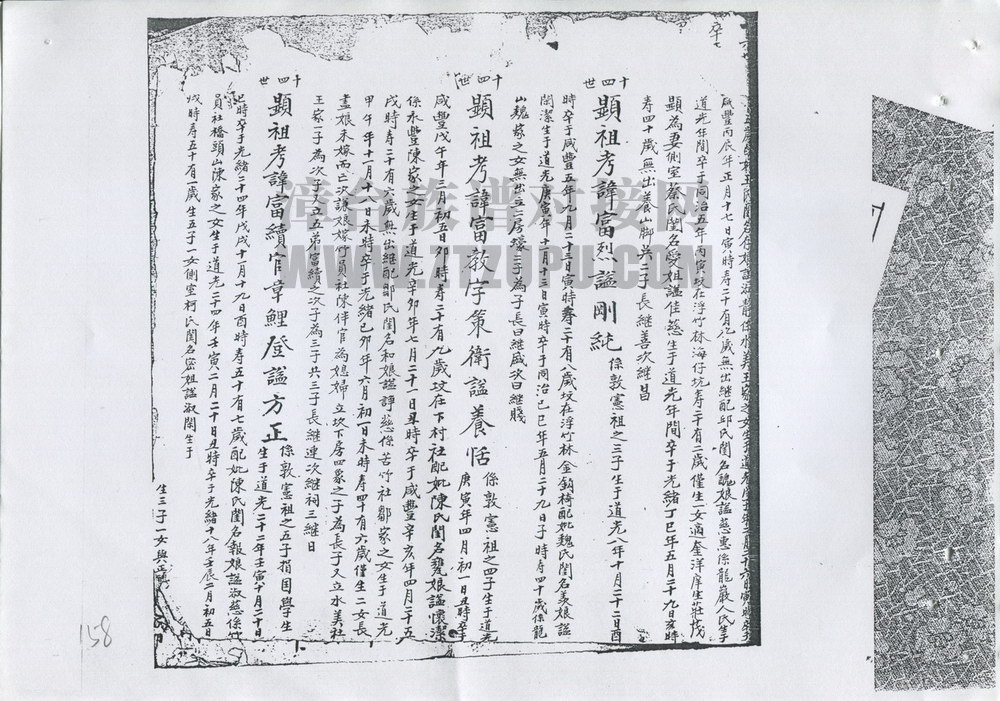 卒七
咸豐丙辰年正月十七日寅時壽二十有
歲無出継配邱氏閨名
娘謚慈惠係龍巖人氏生于
道光年間卒于同治五年丙寅坟在浮竹林海仔坑壽三十有二歲僅生一女適奎洋庠生莊茂
顯為妻側室蔡氏閨名受姐謚佳慈生于道光年間卒于光緒丁巳年五月二十九日亥時
壽四十歲無出養一脚共二子長継善次継昌
十四世
顯祖考諱富烈謚剛純
係敦憲祖之三子生于道光八年十月二十二日酉
時卒于咸豐五年九月二十三日寅時壽二十有八歲坟在浮竹林金鈎椅配妣魏氏閨名美娘謚
閨潔生于道光庚寅年十一月十二日寅時卒于同治己巳年五月二十九日子時壽四十歲係龍
山魏家之女無出立二房壕三子為子長曰継盛次曰継賤
十四世
顯祖考諱富教字策衛謚養恬
係敦憲祖之四子生于道光
庚寅年四月初一日丑時卒于
咸豐戊午年三月初五日卯時壽二十有九歲坟在下村社配妣陳氏閨名甕娘謚懷潔
係永豐陳家之女生于道光辛卯年七月二十一日丑時卒于咸豐辛亥年四月二十五
戌時壽二十有六歲無出継配鄒氏閨名和娘謚諍慈係苦竹社鄒家之女生于道光
甲午年十一月十八日未時卒于光緒己卯年六月初一日未時壽四十有六歲僅生二女長
畫娘未嫁而亡次謙娘嫁竹員社陳伴官為媳婦立坎下房四象之子為長子又立水美社
王家一子為次子又立五弟富績之次子為三子共三子長継連次継祠三継日
十四世
顯祖考諱富績官章鯉登謚方正
係敦憲祖之五子捐國學生
生于道光二十二年壬寅十月二十日
巳時卒于光緒二十四年戊戌十月十九日酉時壽五十有七歲配妣陳氏閨名報娘謚淑慈係竹
員社橋頭山陳家之女生于道光二十四年壬寅二月二十日丑時卒于光緒十八年壬辰二月初五日
戌時壽五十有一歲生五子一女側室柯氏閨名密姐謚淑閑生于
生三子一女與
158
漳台族谱对接网
WWW.ZTZUPU.COM